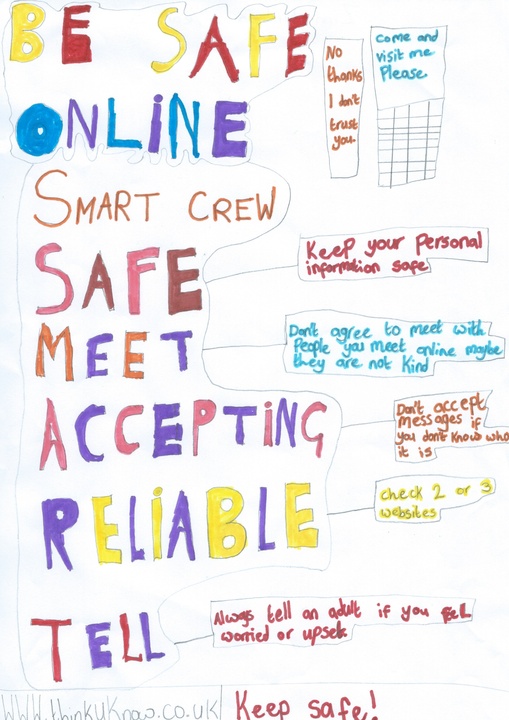 BE SAFE
ONLINE
No
thanks
I don't
trust
you.
Come and
visit me
Please
SMART CREW
SAFE
Keep your Personal
information safe
MEET
Don't agree to meet with
People you meet online maybe
they are not kind
ACCEPTING
Don't accept
messages if
you don't know who
it is
RELIABLE
check 2 or 3
websites
TELL
Always tell an adult if you feel
worried or upset.
WWW.thinkUKnow.co.uk
Keep safe!